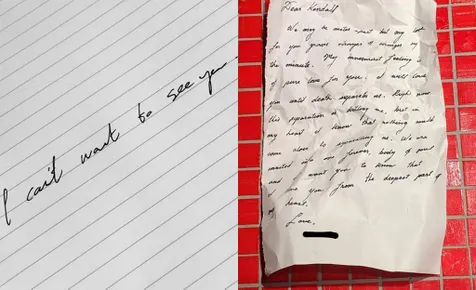 I can't want to see you.
Dear Kendall
We may be miles apart but my love
for you grows stronger & stronger by
the minute. My innermost feeling is
of pure love for you. it will love
you until death separate us. Right now
this separation is killing me, but in
my heart I know that nothing could
come close to separating us. We are
united into one forever, body & soul
and I want you to know that
I love you from the deepest part of
my heart.
Love,